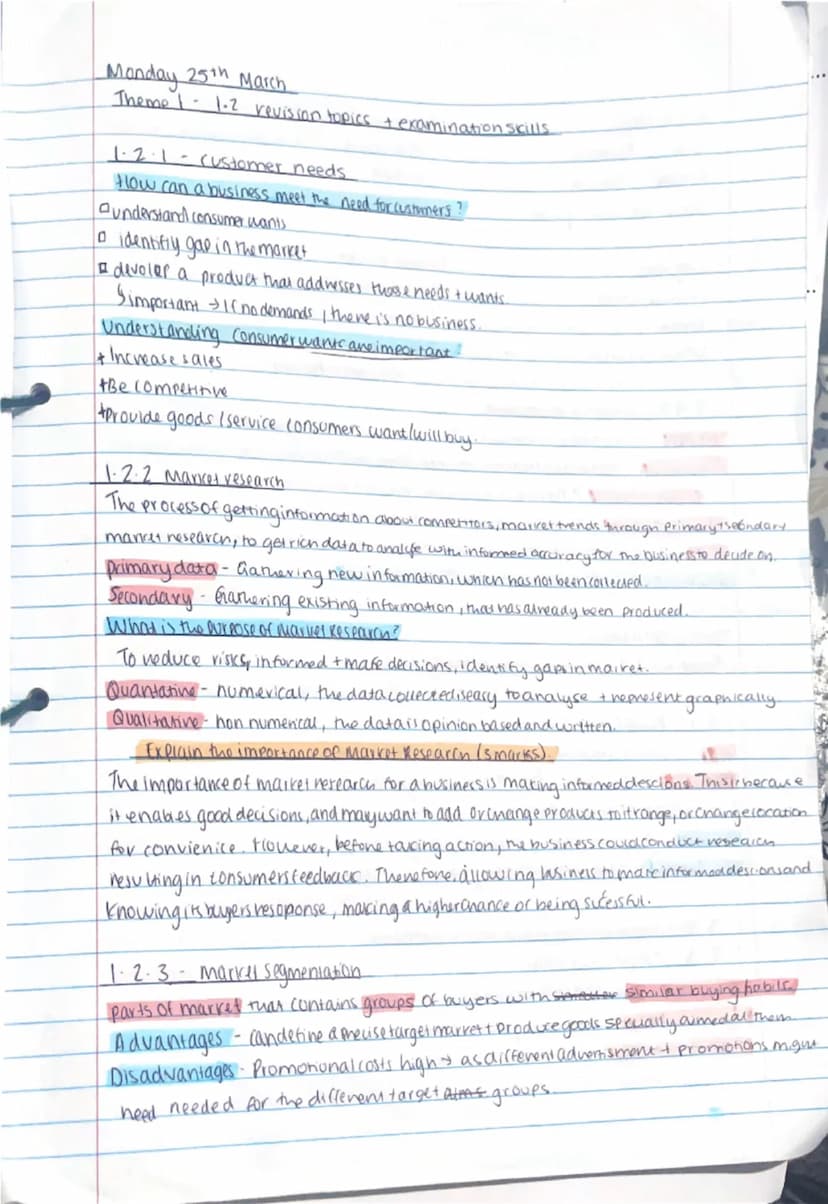 Monday 25th March
Theme 1 - 1.2 revision topics + examination skills
1.2.1 - customer needs
How can a business meet the need for customers?
understand consumer wants
identifiy gap in the market
devolep a product that addresses those needs + wants
important → If no demands, there is no business.
Understanding consumer wants are important:
+ Increase sales
+ Be competitive
+ Provide goods / service consumers want/will buy.
1.2.2 Market research
The process of getting information about competitors, market trends through primary + secondary
market research, to get rich data to analyse with informed accuracy for the business to decide on.
primary data - Gathering new information, which has not been collected.
Secondary - Gathering existing information, that has already been produced.
What is the purpose of Market Research?
To reduce risks, informed + make decisions, identify gaps in market.
Quantative - numerical, the data collected is easy to analyse + represent graphically
Qualitative - non numerical, the data is opinion based and written.
Explain the importance of Market Research (3 marks)
The importance of market research for a business is making informed descions. This is because
it enables good decisions, and may want to add or change products to it range, or change location
for convienice. However, before taking action, the business could conduct research
resulting in consumers feedback. Therefore, allowing business to make informed descions and
knowing its buyers resoponse, making a higher chance of being sucessful.
1.2.3 - Market segmentation
parts of market that contains groups of buyers with similar buying habits.
Advantages - can define a precise target market + produce goods specially aimed at them
Disadvantages - Promotional costs high → as different advertisment + promotions might
need needed for the different target groups.